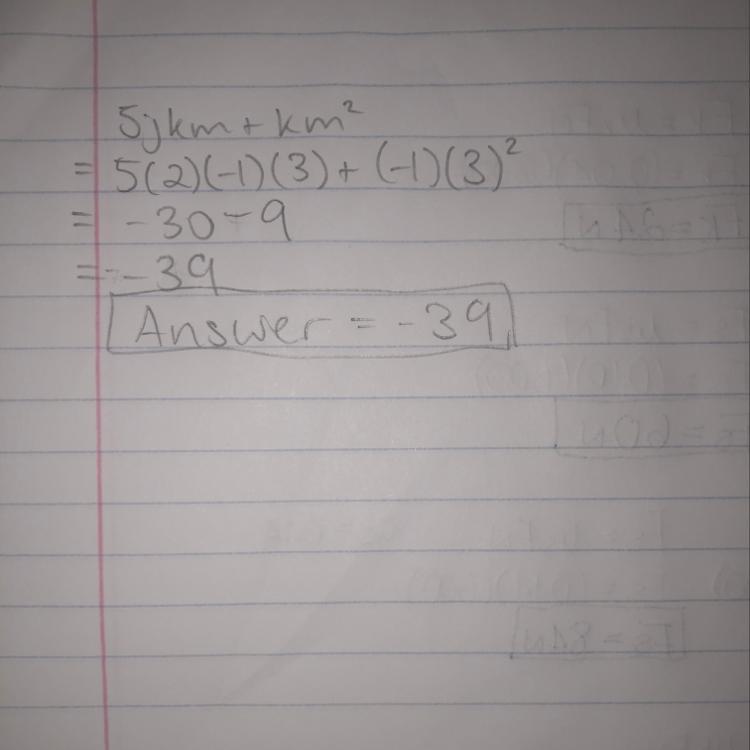 5jkm + km²
= 5(2)(-1)(3) + (-1)(3)²
= -30 - 9
= -39
Answer = -39